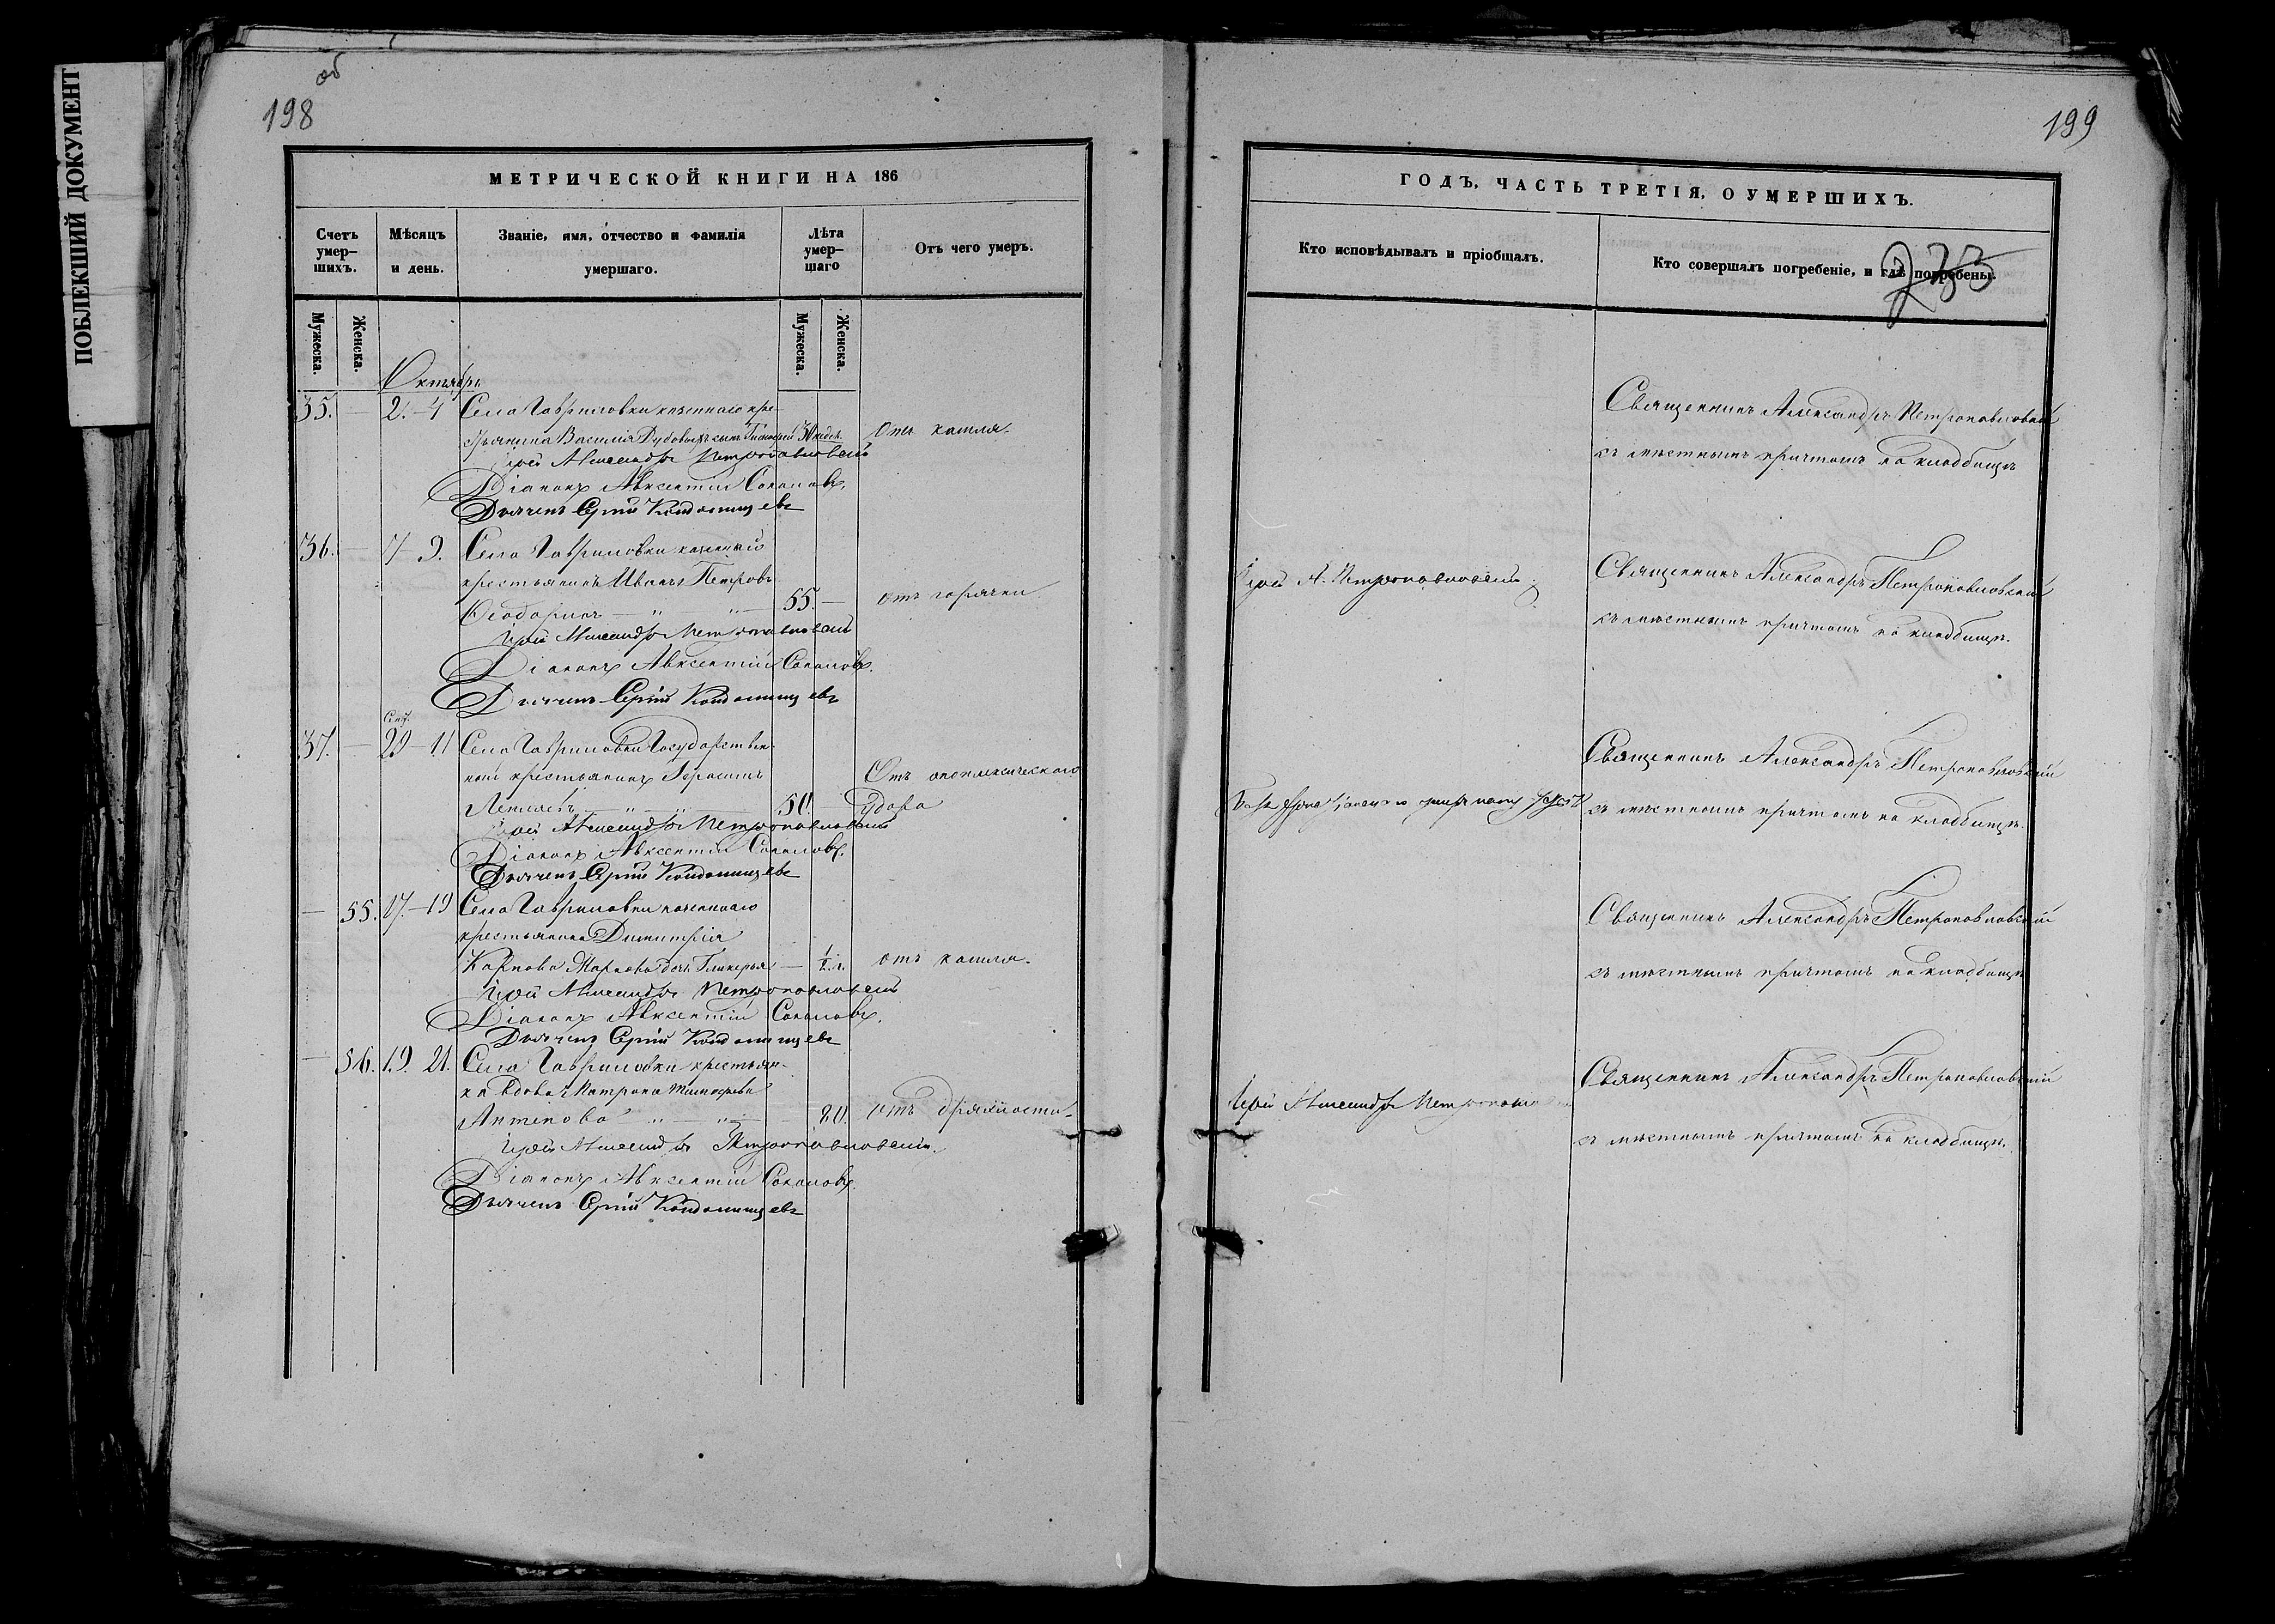 ПОБЛЕКШИЙ ДОКУМЕНТ
об
198
МЕТРИЧЕСКОЙ КНИГИ НА 186
Счетъ умер-шихъ.
Мѣсяцъ и день.
Званіе, имя, отчество и фамилія умершаго.
Лѣта умер-шаго
Отъ чего умеръ.
Мужеска.
Женска.
Мужеска.
Женска.
Октябрь
35. — 2. – 4 Села Гавриловки казеннаго кре-
стьянина Василія сынъ 30 нед. Отъ кашля.
Іерей Александръ Петропавловскій
Діаконъ Авксентій Соколовъ.
Дьячекъ Сергій
36. — 7 – 9. Села Гавриловки казеннаго
крестьянинъ Иванъ Петровъ
55. — отъ горячки
Іерей Александръ Петропавловскій
Діаконъ Авксентій Соколовъ.
Дьячекъ Сергій
Сент.
37. — 29 – 11 Села Гавриловки Государствен-
ный крестьянинъ Герасимъ
50. — Отъ апоплексическаго
удара
Іерей Александръ Петропавловскій
Діаконъ Авксентій Соколовъ.
Дьячекъ Сергій
— 55. 17. – 19 Села Гавриловки казеннаго
крестьянина Димитрія
Карпова дочь Гликерья — ½ г. отъ кашля.
Іерей Александръ Петропавловскій
Діаконъ Авксентій Соколовъ.
Дьячекъ Сергій
— 56. 19. 21. Села Гавриловки крестьян-
ка вдова Матрона Тимофеева
80. отъ дряхлости.
Іерей Александръ Петропавловскій.
Діаконъ Авксентій Соколовъ.
Дьячекъ Сергій
199
ГОДЪ, ЧАСТЬ ТРЕТІЯ, О УМЕРШИХЪ.
Кто исповѣдывалъ и пріобщалъ.
Кто совершалъ погребеніе, и гдѣ погребены.
Священникъ Александръ Петропавловскій
съ мѣстнымъ причтомъ на кладбищѣ
Іерей А. Петропавловскій
Священникъ Александръ Петропавловскій
съ мѣстнымъ причтомъ на кладбищѣ.
Священникъ Александръ Петропавловскій
съ мѣстнымъ причтомъ на кладбищѣ.
Священникъ Александръ Петропавловскій
съ мѣстнымъ причтомъ на кладбищѣ
Іерей Александръ
Священникъ Александръ Петропавловскій
съ мѣстнымъ причтомъ на кладбищѣ.